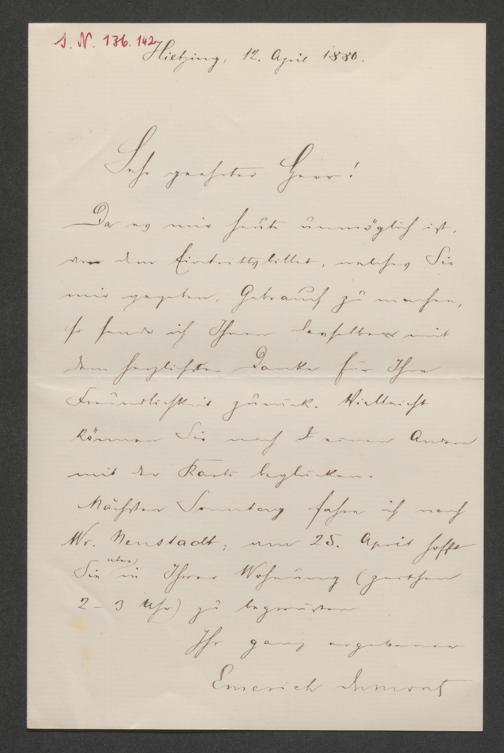 I. N. 136.142
Hietzing, 12. April 1880.
Sehr geehrter Herr!
Da es mir heute unmöglich ist,
von dem Eintrittsbillet, welches Sie
mir gegeben, Gebrauch zu machen,
so sende ich Ihnen dasselbe mit
dem herzlichsten Danke für Ihre
Freundlichkeit zurück. Vielleicht
können Sie noch einen Andern
mit der Karte beglücken.
Nächsten Sonntag fahre ich nach
Wr. Neustadt; am 25. April hoffe
Sie aber in Ihrer Wohnung (zwischen
2–3 Uhr) zu begrüssen
Ihr ganz ergebener
Emerich Dumont